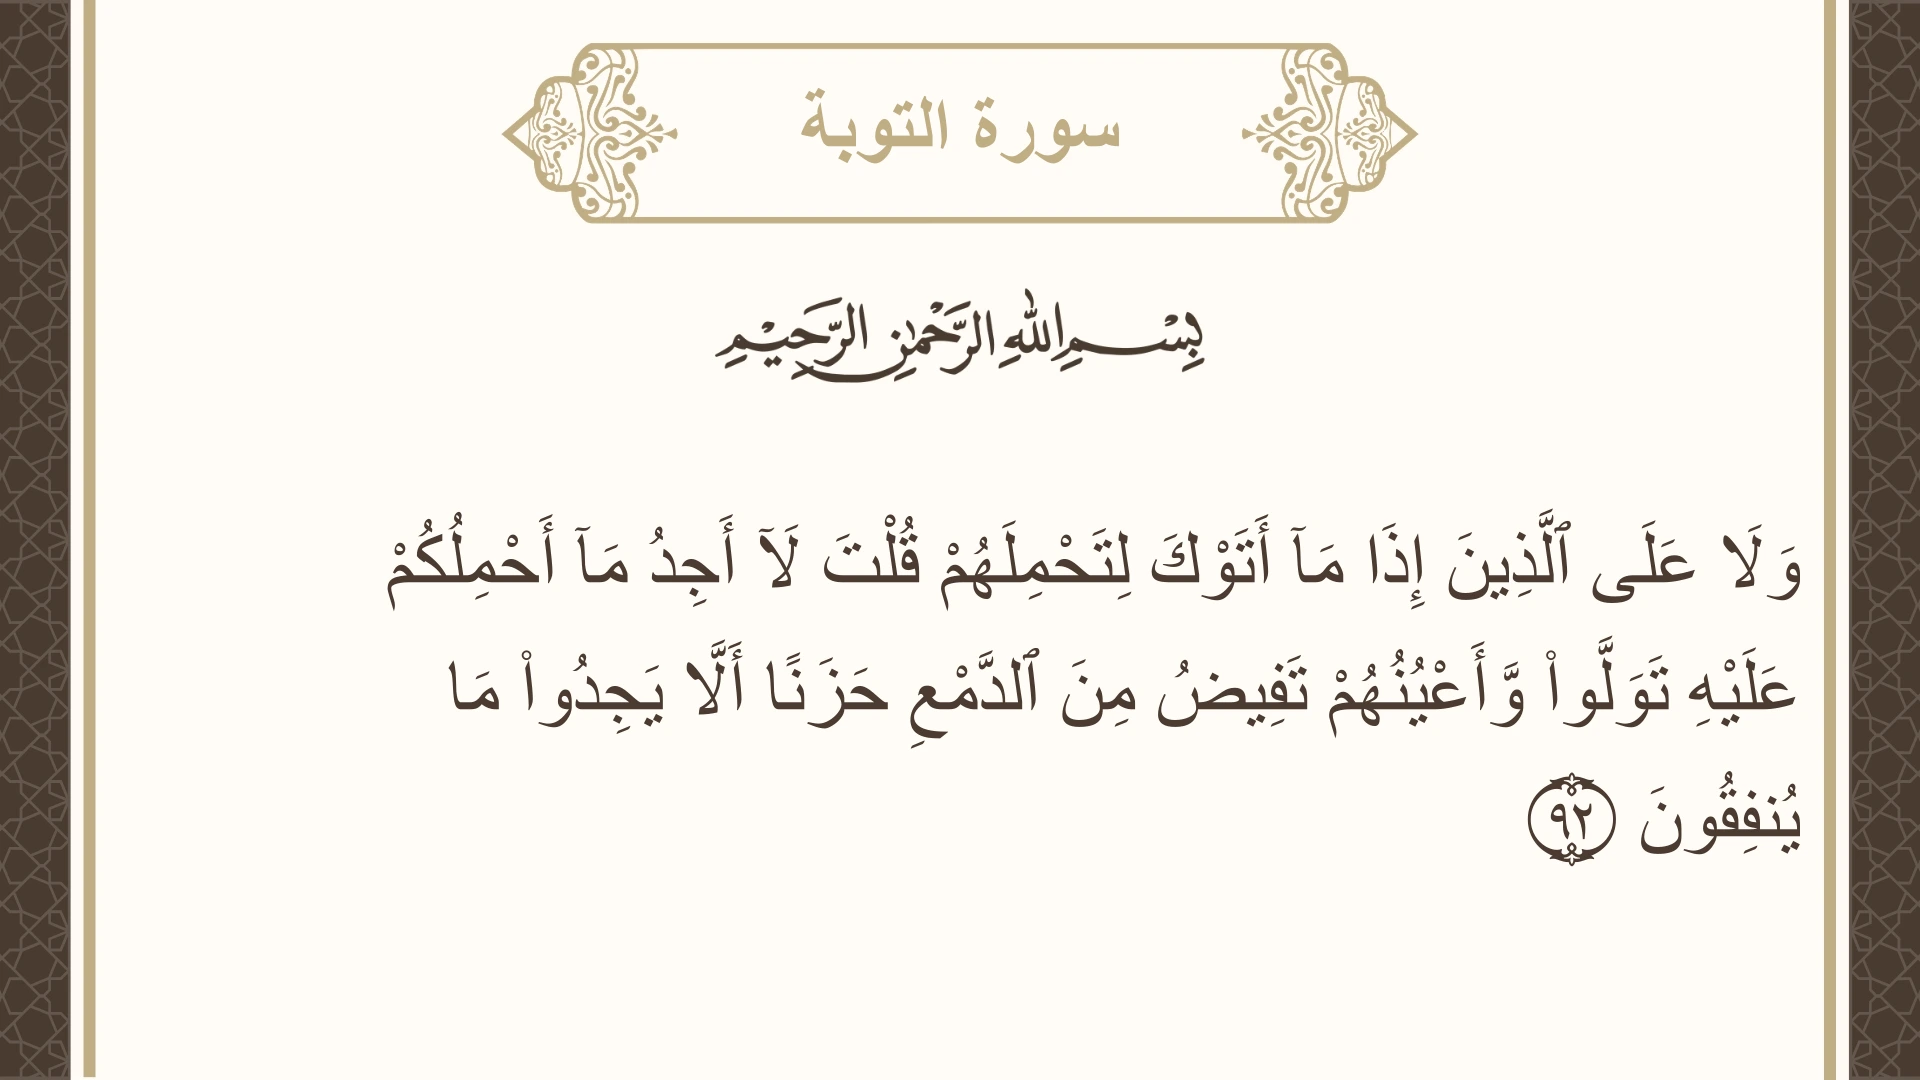 سورة التوبة
بِسْمِ اللهِ الرَّحْمٰنِ الرَّحِيْمِ
وَلَا عَلَى ٱلَّذِينَ إِذَا مَآ أَتَوْكَ لِتَحْمِلَهُمْ قُلْتَ لَآ أَجِدُ مَآ أَحْمِلُكُمْ
عَلَيْهِ تَوَلَّوا۟ وَّأَعْيُنُهُمْ تَفِيضُ مِنَ ٱلدَّمْعِ حَزَنًا أَلَّا يَجِدُوا۟ مَا
يُنفِقُونَ ٩٢